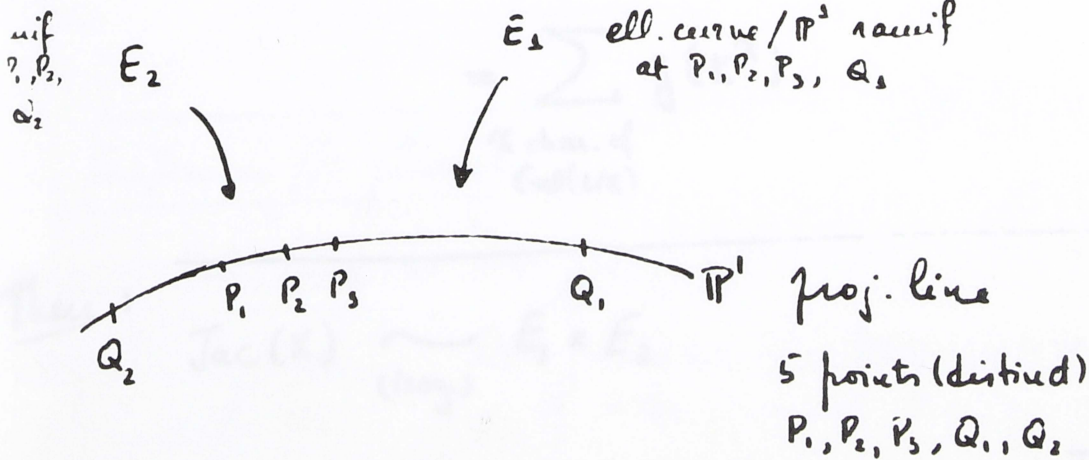 nif
P₁, P₂,
Q₂
E₂
E₁
ell. curve / P¹ ramif
at P₁, P₂, P₃, Q₁
P₁ P₂ P₃
Q₁
P¹
proj. line
Q₂
5 points (distinct)
P₁, P₂, P₃, Q₁, Q₂
Jac(X) ~ E₁ × E₂